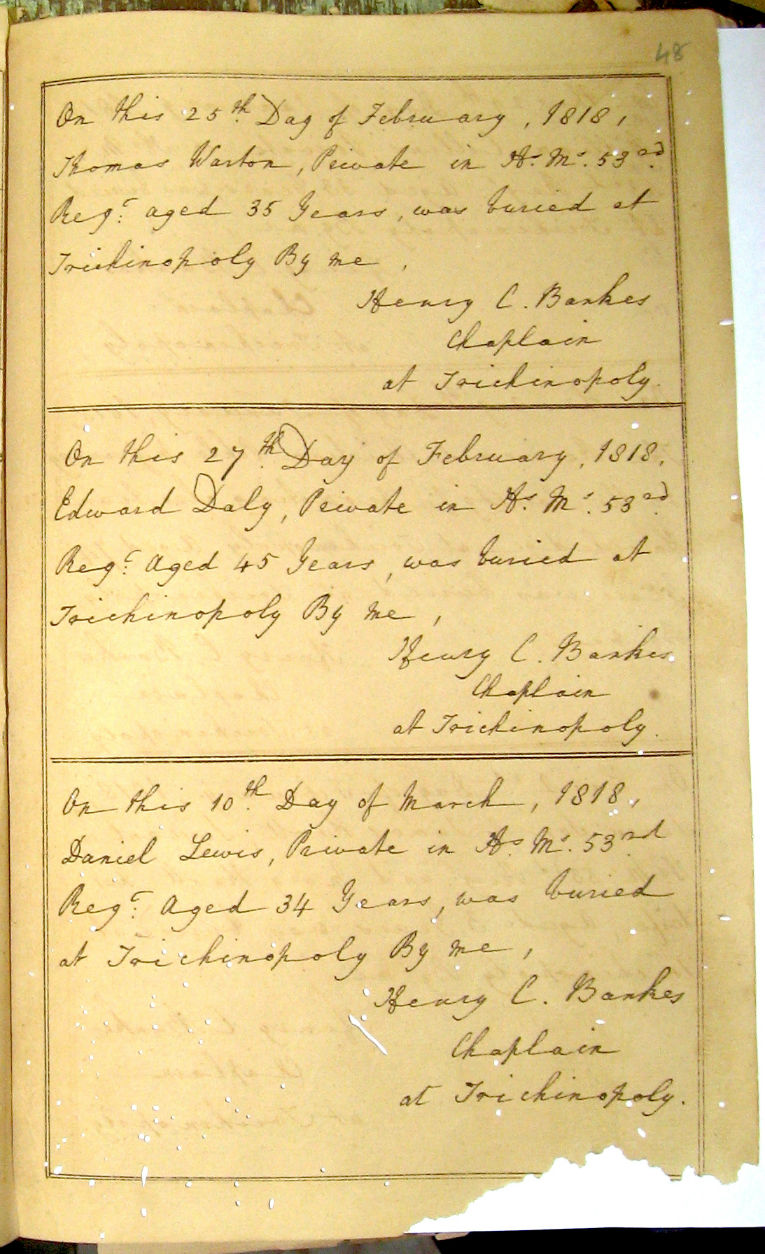 48
On this 25th Day of February, 1818,
Thomas Warton, Private in H.s M.s 53rd
Regt. aged 35 Years, was buried at
Trichinopoly By me,
Henry C. Bankes
Chaplain
at Trichinopoly.
On this 27th Day of February, 1818,
Edward Daly, Private in H.s M.s 53rd
Regt. Aged 45 Years, was buried at
Trichinopoly By me,
Henry C. Bankes
Chaplain
at Trichinopoly.
On this 10th Day of March, 1818,
Daniel Lewis, Private in H.s M.s 53rd
Regt. Aged 34 Years, was buried
at Trichinopoly By me,
Henry C. Bankes
Chaplain
at Trichinopoly.